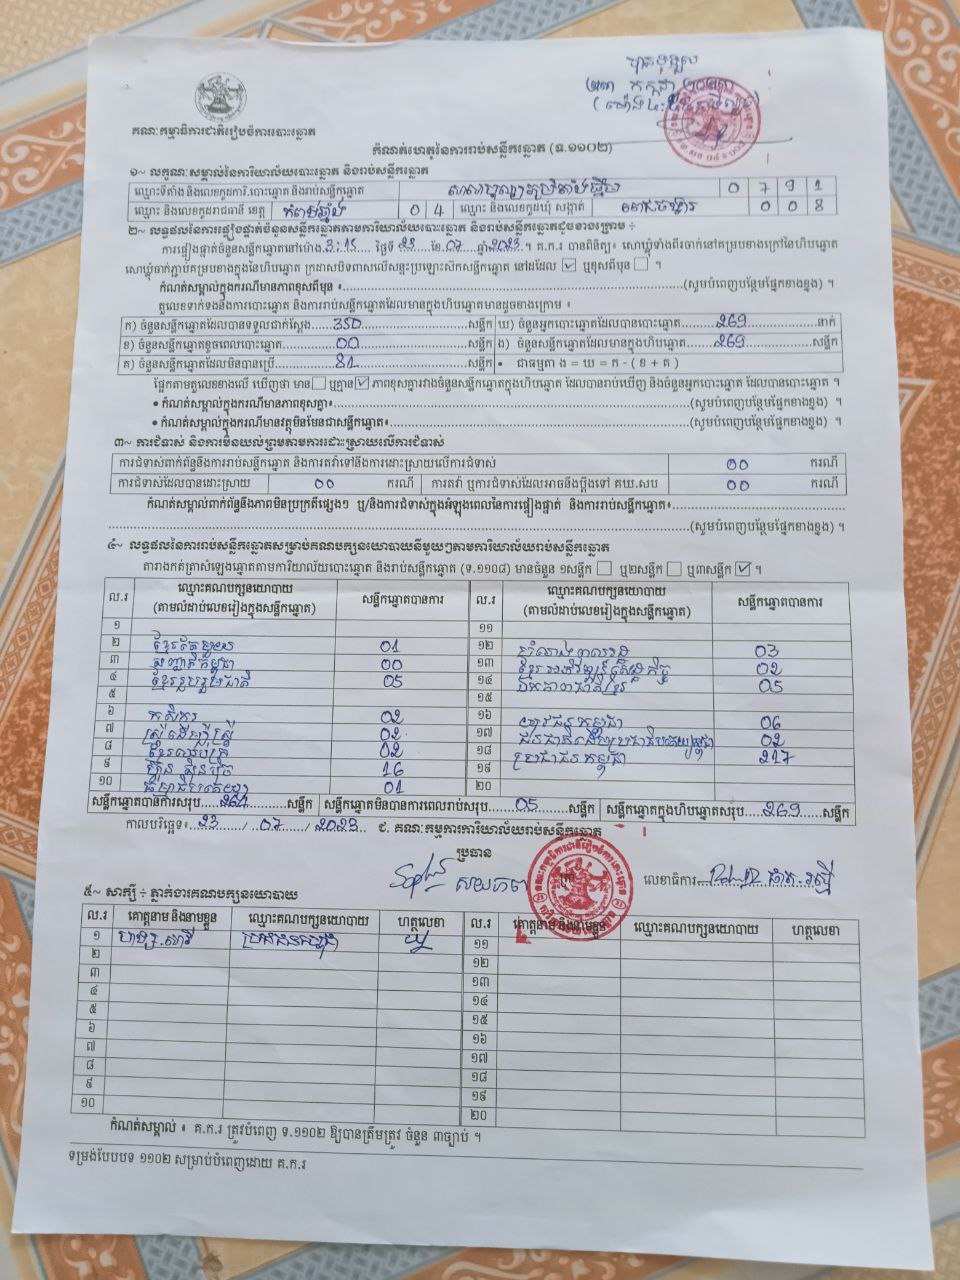 បានទទួល
២៣ កក្កដា ២០២៣
គណៈកម្មាធិការជាតិរៀបចំការបោះឆ្នោត
កំណត់ហេតុនៃការរាប់សន្លឹកឆ្នោត (ទ.១១០២)
១~ លក្ខណៈសម្គាល់នៃការិយាល័យបោះឆ្នោត និងរាប់សន្លឹកឆ្នោត
ឈ្មោះទីតាំង និងលេខកូដការិ.បោះឆ្នោត និងរាប់សន្លឹកឆ្នោត 0 7 9 1
ឈ្មោះ និងលេខកូដរាជធានី ខេត្ត កំពង់ឆ្នាំង 0 4 ឈ្មោះ និងលេខកូដឃុំ សង្កាត់ 0 0 8
២~ លទ្ធផលនៃការផ្ទៀងផ្ទាត់ចំនួនសន្លឹកឆ្នោតតាមការិយាល័យបោះឆ្នោត និងរាប់សន្លឹកឆ្នោតដូចខាងក្រោម ÷
ការផ្ទៀងផ្ទាត់ចំនួនសន្លឹកឆ្នោតនៅម៉ោង 3:15 ថ្ងៃទី 23 ខែ 07 ឆ្នាំ 2023 ។ គ.ក.រ បានពិនិត្យ៖ សោឃ្លុំទាំងពីរចាក់នៅគម្របខាងក្រៅនៃហិបឆ្នោត
សោឃ្លុំចាក់ភ្ជាប់គម្របខាងក្នុងនៃហិបឆ្នោត ក្រដាសបិទពាសលើសន្ទះប្រឡោះស៊កសន្លឹកឆ្នោត នៅដដែល ☑ ឬខុសពីមុន ☐ ។
កំណត់សម្គាល់ក្នុងករណីមានភាពខុសពីមុន ៖ (សូមបំពេញបន្ថែមផ្នែកខាងខ្នង) ។
តួលេខទាក់ទងនឹងការបោះឆ្នោត និងការរាប់សន្លឹកឆ្នោតដែលមានក្នុងហិបឆ្នោតមានដូចខាងក្រោម ៖
ក) ចំនួនសន្លឹកឆ្នោតដែលបានទទួលជាក់ស្តែង 350 សន្លឹក ឃ) ចំនួនអ្នកបោះឆ្នោតដែលបានបោះឆ្នោត 269 នាក់
ខ) ចំនួនសន្លឹកឆ្នោតខូចពេលបោះឆ្នោត 00 សន្លឹក ង) ចំនួនសន្លឹកឆ្នោតដែលមានក្នុងហិបឆ្នោត 269 សន្លឹក
គ) ចំនួនសន្លឹកឆ្នោតដែលមិនបានប្រើ 81 សន្លឹក • ជាធម្មតា ង = ឃ = ក - ( ខ + គ )
ផ្អែកតាមតួលេខខាងលើ ឃើញថា មាន ☐ ឬគ្មាន ☑ ភាពខុសគ្នារវាងចំនួនសន្លឹកឆ្នោតក្នុងហិបឆ្នោត ដែលបានរាប់ឃើញ និងចំនួនអ្នកបោះឆ្នោត ដែលបានបោះឆ្នោត ។
• កំណត់សម្គាល់ក្នុងករណីមានភាពខុសគ្នា៖ (សូមបំពេញបន្ថែមផ្នែកខាងខ្នង) ។
• កំណត់សម្គាល់ក្នុងករណីមានវត្ថុមិនមែនជាសន្លឹកឆ្នោត៖ (សូមបំពេញបន្ថែមផ្នែកខាងខ្នង) ។
៣~ ការជំទាស់ និងការមិនយល់ព្រមតាមការដោះស្រាយលើការជំទាស់
ការជំទាស់ពាក់ព័ន្ធនឹងការរាប់សន្លឹកឆ្នោត និងការតវ៉ាទៅនឹងការដោះស្រាយលើការជំទាស់ 00 ករណី
ការជំទាស់ដែលបានដោះស្រាយ 00 ករណី ការតវ៉ា ឬការជំទាស់ដែលអាចនឹងប្តឹងទៅ គឃ.សប 00 ករណី
កំណត់សម្គាល់ពាក់ព័ន្ធនឹងភាពមិនប្រក្រតីផ្សេងៗ ឬ/និងការជំទាស់ក្នុងអំឡុងពេលនៃការផ្ទៀងផ្ទាត់ និងការរាប់សន្លឹកឆ្នោត៖
(សូមបំពេញបន្ថែមផ្នែកខាងខ្នង) ។
៤~ លទ្ធផលនៃការរាប់សន្លឹកឆ្នោតសម្រាប់គណបក្សនយោបាយនីមួយៗតាមការិយាល័យរាប់សន្លឹកឆ្នោត
តារាងកត់ត្រាសំឡេងឆ្នោតតាមការិយាល័យបោះឆ្នោត និងរាប់សន្លឹកឆ្នោត (ទ.១១០៨) មានចំនួន ១សន្លឹក ☐ ឬ២សន្លឹក ☐ ឬ៣សន្លឹក ☑ ។
ល.រ ឈ្មោះគណបក្សនយោបាយ (តាមលំដាប់លេខរៀងក្នុងសន្លឹកឆ្នោត) សន្លឹកឆ្នោតបានការ ល.រ ឈ្មោះគណបក្សនយោបាយ (តាមលំដាប់លេខរៀងក្នុងសន្លឹកឆ្នោត) សន្លឹកឆ្នោតបានការ
១ ១១
២ ខ្មែរតែមួយ 01 ១២ 03
៣ សញ្ជាតិកម្ពុជា 00 ១៣ ខ្មែរអភិវឌ្ឍន៍សេដ្ឋកិច្ច 02
៤ ខ្មែររួបរួមជាតិ 05 ១៤ ឯកភាពជាតិខ្មែរ 05
៥ ១៥
៦ កសិករ 02 ១៦ យុវជនកម្ពុជា 06
៧ ស្ត្រីដើម្បីស្ត្រី 02 ១៧ 02
៨ 02 ១៨ ប្រជាជនកម្ពុជា 217
៩ ហ៊្វុនស៊ិនប៉ិច 16 ១៩
១០ ធម្មាធិបតេយ្យ 01 ២០
សន្លឹកឆ្នោតបានការសរុប 264 សន្លឹក សន្លឹកឆ្នោតមិនបានការពេលរាប់សរុប 05 សន្លឹក សន្លឹកឆ្នោតក្នុងហិបឆ្នោតសរុប 269 សន្លឹក
កាលបរិច្ឆេទ៖ 23 / 07 / 2023 ជ. គណៈកម្មការការិយាល័យរាប់សន្លឹកឆ្នោត
ប្រធាន
លេខាធិការ
៥~ សាក្សី ÷ ភ្នាក់ងារគណបក្សនយោបាយ
ល.រ គោត្តនាម និងនាមខ្លួន ឈ្មោះគណបក្សនយោបាយ ហត្ថលេខា ល.រ គោត្តនាម និងនាមខ្លួន ឈ្មោះគណបក្សនយោបាយ ហត្ថលេខា
១ ប្រជាជនកម្ពុជា ១១
២ ១២
៣ ១៣
៤ ១៤
៥ ១៥
៦ ១៦
៧ ១៧
៨ ១៨
៩ ១៩
១០ ២០
កំណត់សម្គាល់ ៖ គ.ក.រ ត្រូវបំពេញ ទ.១១០២ ឱ្យបានត្រឹមត្រូវ ចំនួន ៣ច្បាប់ ។
ទម្រង់បែបបទ ១១០២ សម្រាប់បំពេញដោយ គ.ក.រ